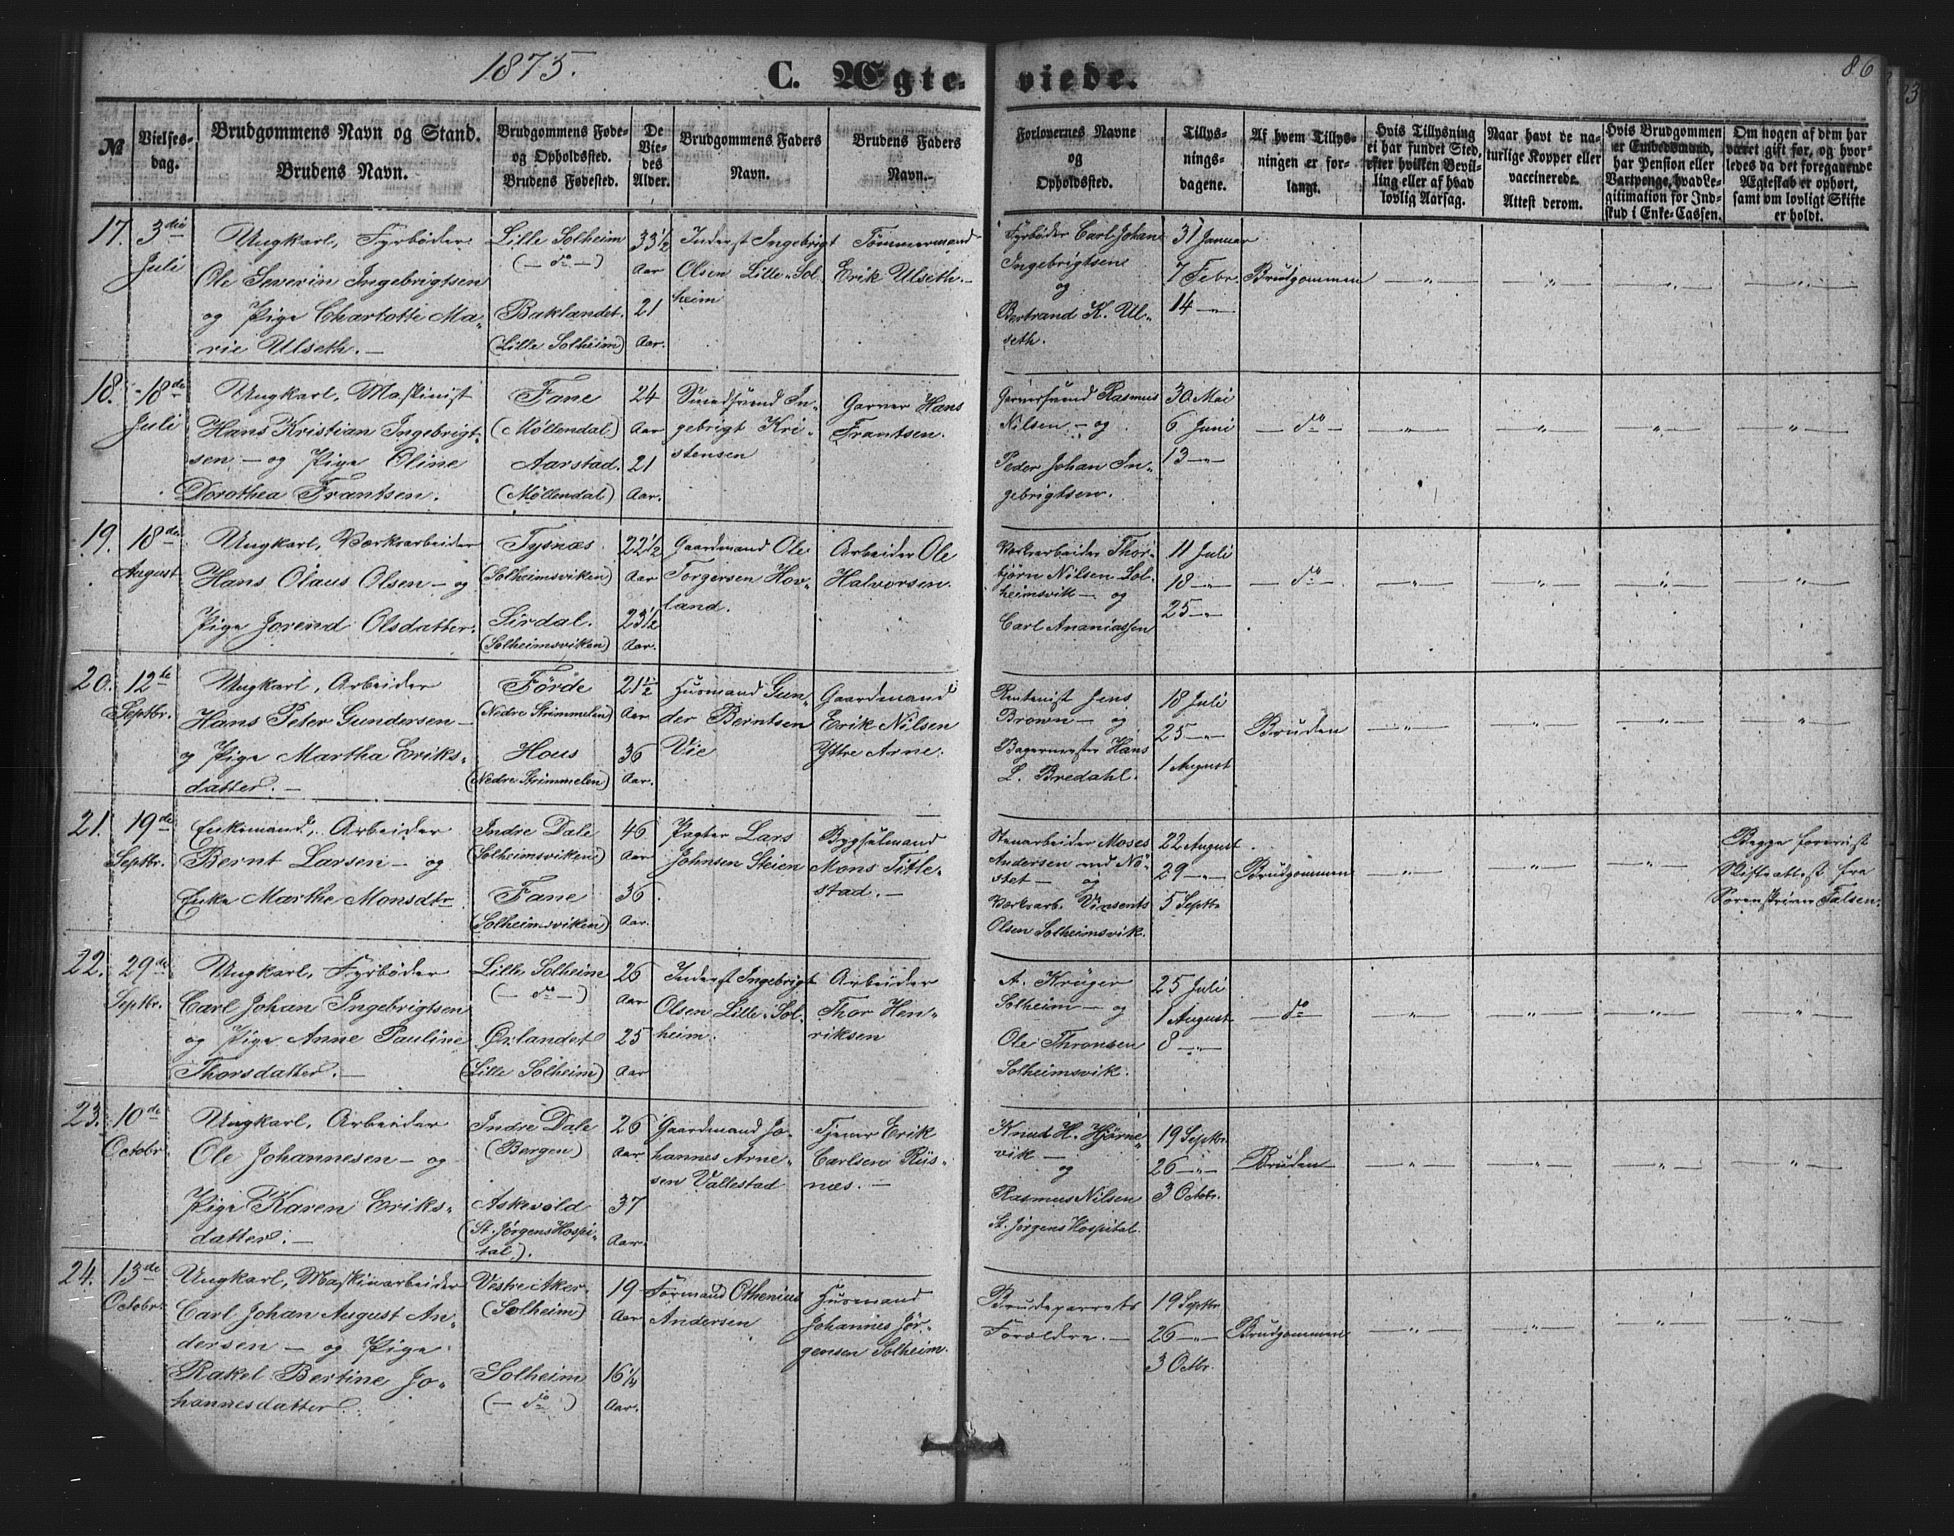 1875.
C. Ægte-
viede.
86
№
Vielses-
dag.
Brudgommens Navn og Stand.
Brudens Navn.
Brudgommens Føde-
og Opholdssted.
Brudens Fødested.
De
Vie-
des
Alder.
Brudgommens Faders
Navn.
Brudens Faders
Navn.
Forlovernes Navne
og
Opholdssted.
Tillys-
nings-
dagene.
Af hvem Tillys-
ningen er for-
langt.
Hvis Tillysning
ei har fundet Sted,
efter hvilken Bevil-
ling eller af hvad
lovlig Aarsag.
Naar havt de na-
turlige Kopper eller
vaccinerede.
Attest derom.
Hvis Brudgommen
er Embedsmand,
har Pension eller
Vartpenge, hvad Le-
gitimation for Ind-
skud i Enke-Cassen.
Om nogen af dem har
været gift før, og hvor-
ledes da det foregaaende
Ægteskab er ophørt,
samt om lovligt Skifte
er holdt.
17.
3die
Juli
Ungkarl, Fyrbøder
Ole Severin Ingebrigtsen
og Pige Charlotte Ma-
rie Ulseth. —
Lille Solheim
(— do —)
Baklandet.
(Lille Solheim)
33½
Aar
21
Aar.
Inderst Ingebrigt
Olsen Lille-Sol-
heim
Tømmermand
Erik Ulseth. —
Fyrbøder Carl Johan
Ingebrigtsen
og
Bertrand K. Ul-
seth.
31 Januar
7 Febr.
14 —"—
Brudgommen
—"—
—"—
—"—
—"—
18.
18de
Juli
Ungkarl, Maskinist
Hans Kristian Ingebrigt-
sen — og Pige Oline
Dorothea Frantsen.
Fane
(Møllendal)
Aarstad.
(Møllendal)
24
Aar
21
Aar.
Smedsvend In-
gebrigt Kri-
stensen
Garver Hans
Frantsen.
Garversvend Rasmus
Nilsen — og
Peder Johan In-
gebrigtsen.
30 Mai
6 Juni
13 —"—
— do —
—"—
—"—
—"—
—"—
19.
18de
August
Ungkarl, Værksarbeider
Hans Olaus Olsen — og
Pige Jorend Olsdatter.
Tysnæs
(Solheimsviken)
Sirdal.
(Solheimsviken)
22½
Aar
23½
Aar.
Gaardmand Ole
Torgersen Hov-
land.
Arbeider Ole
Halvorsen.
Værksarbeider Thor-
bjørn Nilsen Sol-
heimsvik — og
Carl Ananiassen
11 Juli
18 —"—
25 —"—
— do —
—"—
—"—
—"—
—"—
20.
12te
Septbr.
Ungkarl, Arbeider
Hans Peter Gundersen —
og Pige Martha Eriks-
datter. —
Førde
(Nedre Strimmelen)
Hous
(Nedre Strimmelen)
21½
Aar
36
Aar.
Husmand Gun-
der Berntsen
Vie
Gaardmand
Erik Nilsen
Yttre Arne.
Rentenist Jens
Brown — og
Bagermester Hans
L. Bredahl.
18 Juli
25 —"—
1 August
Bruden
—"—
—"—
—"—
—"—
21.
19de
Septbr.
Enkemand, Arbeider
Bernt Larsen — og
Enke Marthe Monsdtr
Indre Dale
(Solheimsviken)
Fane
(Solheimsviken)
46
Aar
36
Aar.
Pagter Lars
Johnsen Steien
Bygselmand
Mons Title-
stad. —
Stenarbeider Moses
Andersen ved Nö-
stet — og
Værksarb. Vinsents
Olsen Solheimsvik.
22 August
29 —"—
5 Septbr
Brudgommen
—"—
—"—
—"—
Begge forevist
Skifteattest fra
Sorenskriver Falsen.
22.
29de
Septbr.
Ungkarl, Fyrbøder
Carl Johan Ingebrigtsen
og Pige Anne Pauline
Thorsdatter. —
Lille Solheim
(— do —)
Ørlandet
(Lille Solheim)
26
Aar
25
Aar
Inderst Ingebrigt
Olsen Lille-Sol-
heim.
Arbeider
Thor Hen-
riksen
A. Krüger
Solheim — og
Ole Thronsen
Solheimsvik.
25 Juli
1 August
8 —"—
— do
—"—
—"—
—"—
—"—
23.
10de
Octobr.
Ungkarl, Arbeider
Ole Johannesen — og
Pige Karen Eriks-
datter. —
Indre Dale
(Bergen)
Askevold
(St. Jørgens Hospi-
tal).
26
Aar
37
Aar.
Gaardmand Jo-
hannes Arne-
sen Vallestad
Tjener Erik
Carlsen Riis-
næs. —
Knud H. Hjørne-
vik —
og
Rasmus Nilsen
St. Jørgens Hospital.
19 Septbr.
26 —"—
3 Octobr.
Bruden
—"—
—"—
—"—
—"—
24.
13de
Octobr.
Ungkarl, Maskinarbeider
Carl Johan August An-
dersen — og Pige
Rakel Bertine Jo-
hannesdatter.
Vestre Aker
(Solheim)
Solheim
(— do )
19
Aar
16¼
Aar.
Formand Othenius
Andersen
Husmand
Johannes Jør-
gensen Solheim.
Brudeparrets
Forældre. —
19 Septbr.
26 —"—
3 Octbr.
Brudgommen
—"—
—"—
—"—
—"—